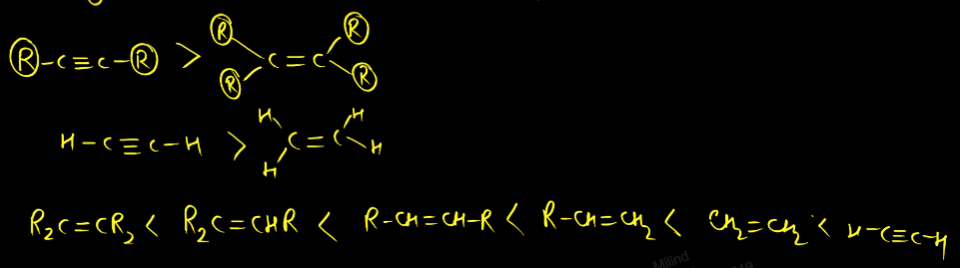 R-C≡C-R > R R C=C R R
H-C≡C-H > H H C=C H H
R₂C=CR₂ < R₂C=CHR < R-CH=CH-R < R-CH=CH₂ < CH₂=CH₂ < H-C≡C-H
Milind